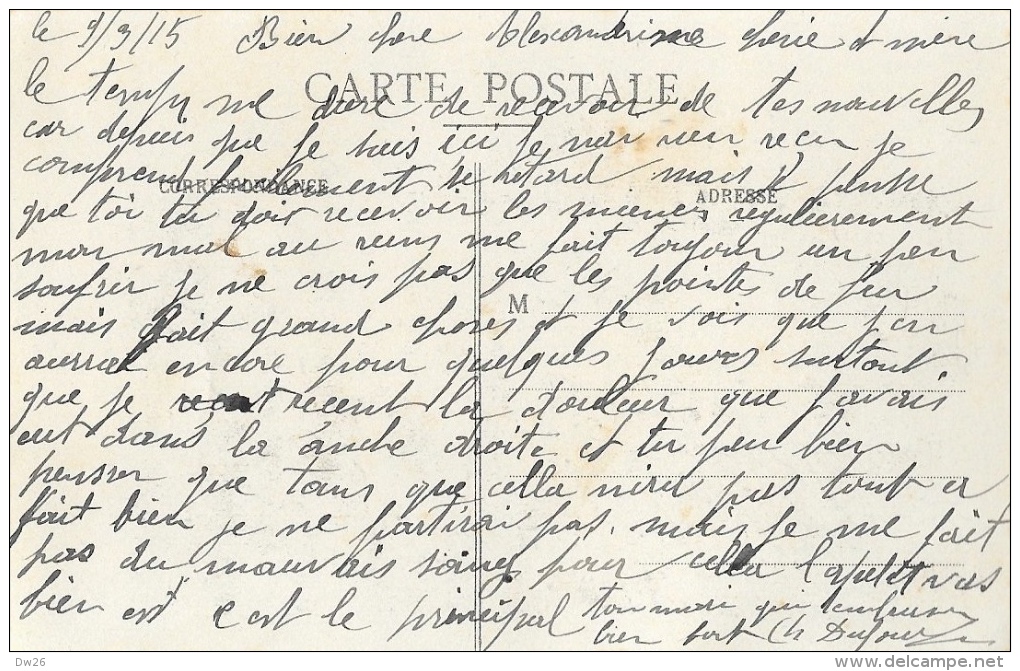 le 9/3/15 Bien chere Alexandrine cherie et mère
CARTE POSTALE
le temps me dure de recevoir de tes nouvelles
car depuis que je suis ici je nai rien recu je
CORRESPONDANCE
ADRESSE
comprend facilement le retard mais je pense
que toi tu dois recevoir les mienes regulierement
mon mal au reins me fait toujour un peu
soufrir je ne crois pas que les pointes de feu
M
mais fait grand choses et je vois que jen
aurrai encore pour quelques jours surtout
que je recent la douleur que javais
eut dans la anche droite et tu peu bien
penser que tans que cella nira pas tout a
fait bien je ne partirai pas, mais je me fait
pas du mauvais sang pour cella lapetit vas
bien est c est le principal ton mari qui
bien fort Ch Dufour
Dw26
http://www.delcampe.net